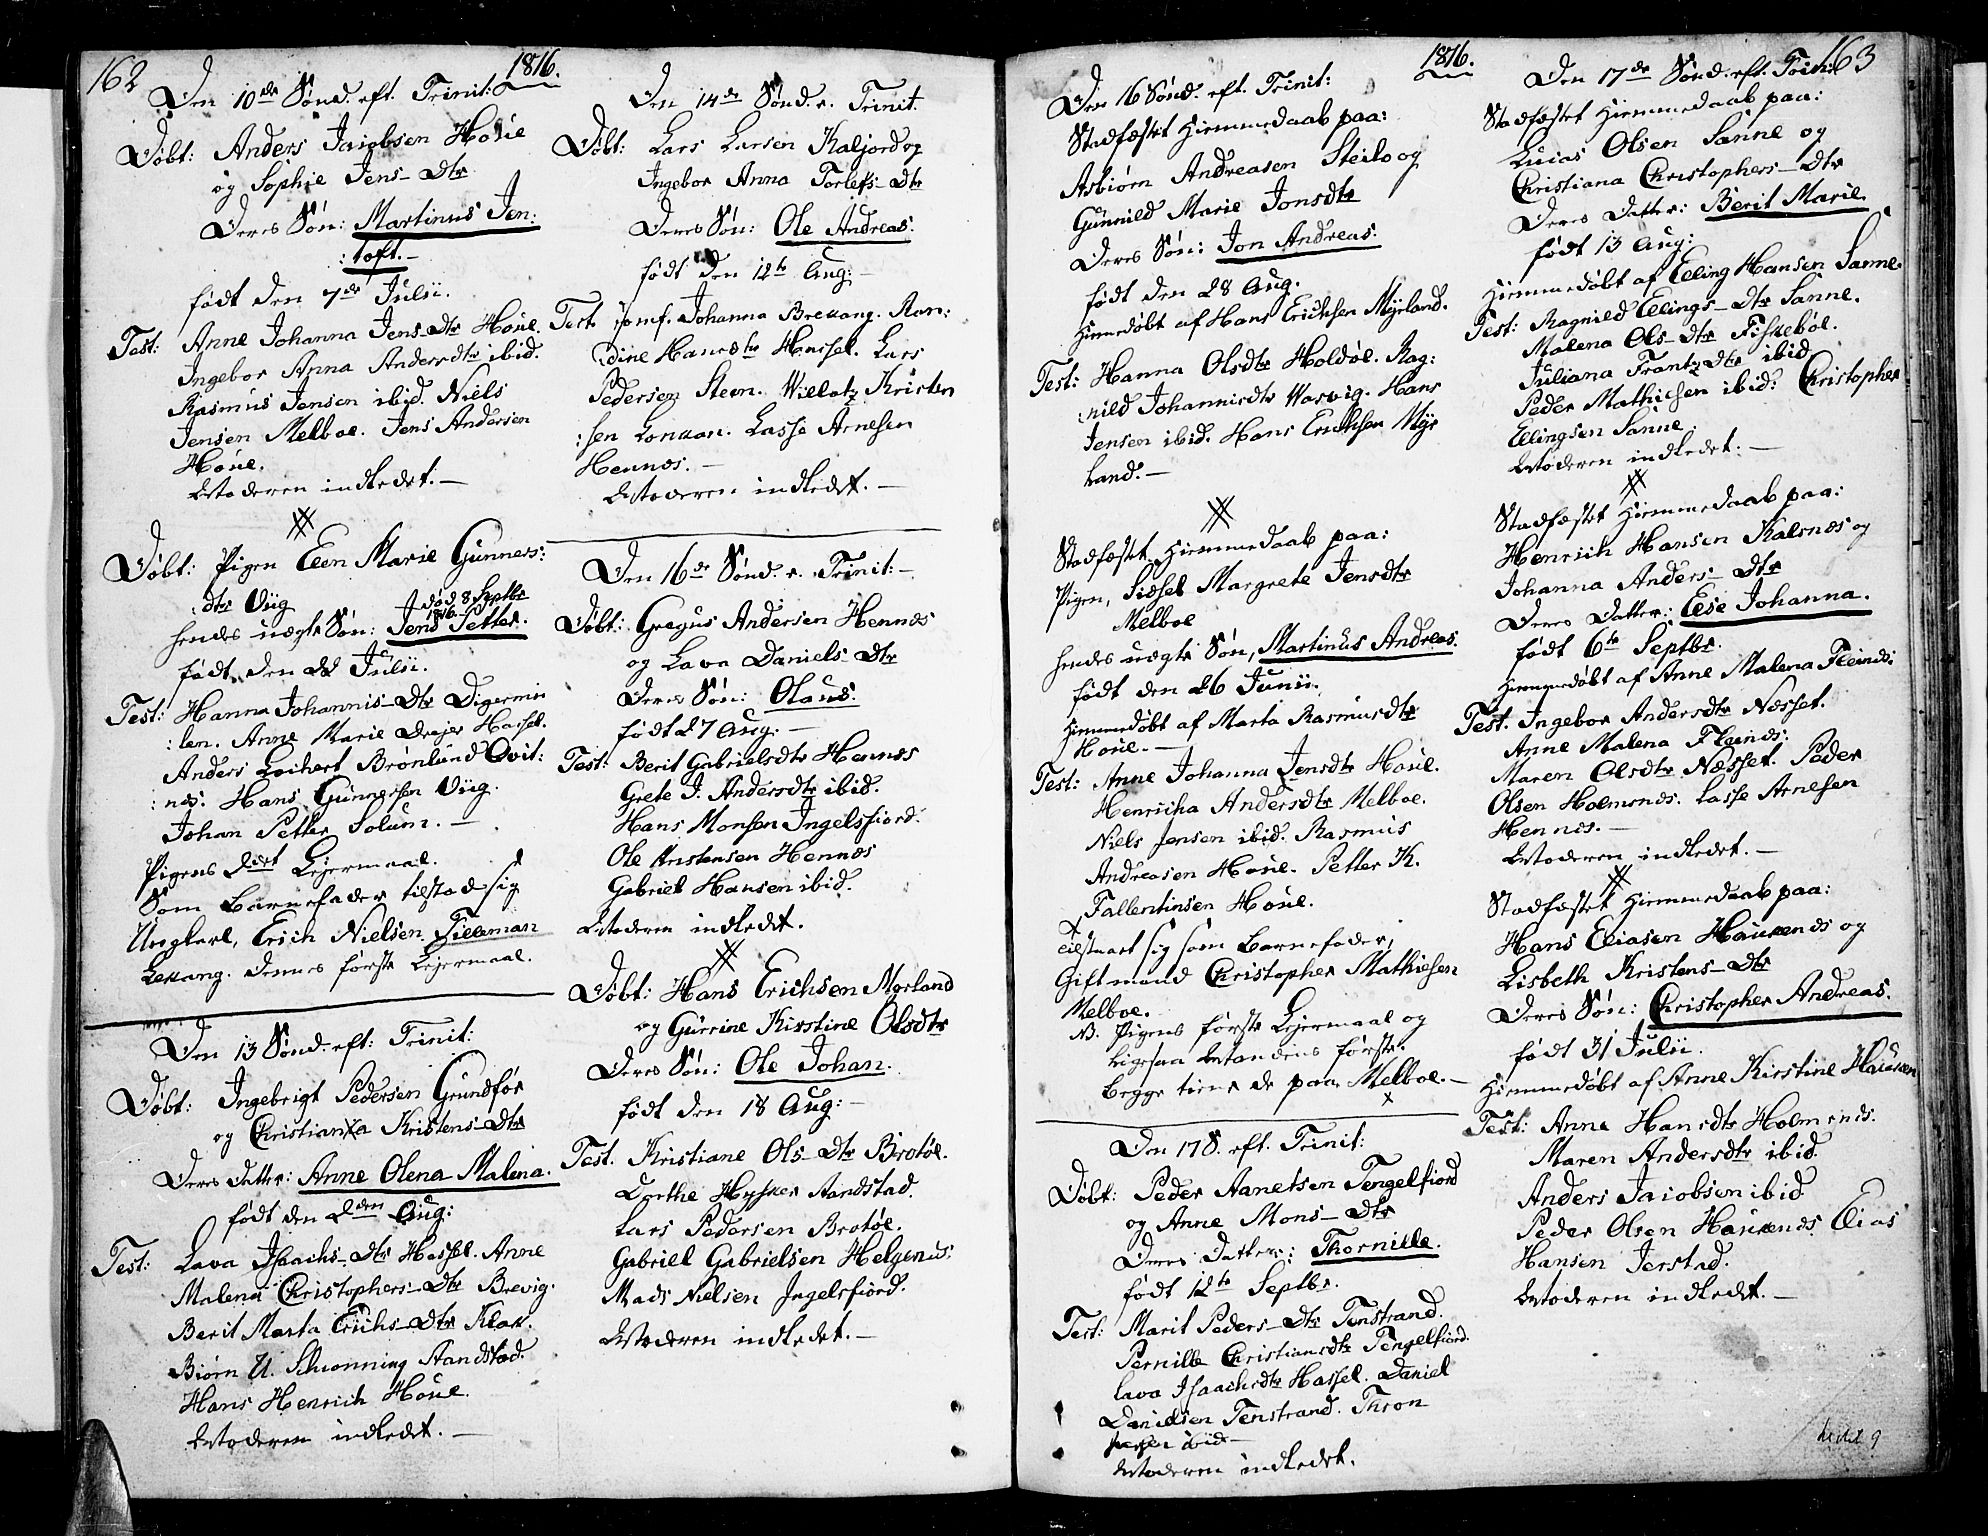 162
1816.
Den 10de Sønd. eft. Trinit:
Døbt: Anders Jacobsen Houe
og Sophie Jens-Dtr
Deres Søn: Martinus Jen:
:toft.-
født den 7de Julii.
Test: Anne Johanna Jens-Dtr Houe.
Ingebor Anna Andersdtr ibid.
Rasmus Jensen ibid. Niels
Jensen Melboe. Jens Andersen
Houe.
Moderen indledet.-
Døbt: Pigen Elen Marie Gunners:
dtr Viig
død 8 Septbr
1816.
hendes uægte Søn: Jens Petter.
født den 22 Julii.
Test: Hanna Johannis-Dtr Digermu
:len. Anne Marie Drejer Hassel.
Anders Lockert Brønlund Qvit:
:næs. Hans Gunnersen Viig.
Johan Petter Solum.-
Pigens 2det Lejermaal.
Som Barnefader tilstod sig
Ungkarl, Erich Nielsen Tilleman
Lekang. dennes første Lejermaal.
Den 13 Sønd. eft: Trinit:
Døbt: Ingebrigt Pedersen Grundfør
og Christianna Kristens-Dtr
Deres Datter: Anne Olena Malena.
født den 2den Aug:
Test: Lava Isaachs-Dtr Hassel. Anne
Malena Christophers-Dtr Brevig.
Berit Marta Erichs-Dtr Klak.
Biørn U. Schonning Aandstad.
Hans Henrich Houe.
Moderen indledet.-
Den 14de Sønd. e. Trinit.
Døbt: Lars Larsen Kaljord og
Ingebor Anna Torlefs-Dtr
Deres Søn: Ole Andreas.
født den 12te Aug:-
Test. Jomf. Johanna Brekang. Ron:
:dine Hansdtr Hassel. Lars
Pedersen Steen. Willatz Kristen
:sen Lonkan. Lasse Arnesen
Hennes.-
Moderen indledet.-
Den 16de Sønd. e. Trinit:-
Døbt: Gregus Andersen Hennes
og Lava Daniels-Dtr
Deres Søn: Olaus.
født 27 Aug:-
Test: Berit Gabrielsdtr Hennes
Grete J. Andersdtr ibid.
Hans Monsen Ingelsfiord.
Ole Kristensen Hennes
Gabriel Hansen ibid.
Moderen indledet.
Døbt: Hans Erichsen Myrland
og Gurrine Kirstine Olsdtr
Deres Søn: Ole Johan.
født den 18 Aug:-
Test. Kristiane Ols-Dtr Brotøe.
Dorthe Hysker Aandstad.
Lars Pedersen Brotøe.
Gabriel Gabrielsen Helgenus:
Mads Nielsen Ingelsfiord.
Moderen indledet.-
1816.
163
Den 16 Sønd. eft. Trinit:
Stadfæstet Hiemmedaab paa:
Asbiørn Andreasen Steilo og
Gunnild Marie Jonsdtr
Deres Søn: Jon Andreas.
født den 28 Aug.
Hiemedøbt af Hans Erichsen Myrland.
Test: Hanna Olsdtr Holdøe. Rag:
:nild Johannisdtr Worvig. Hans
Jensen ibid. Hans Erichsen Myr
land.-
Stadfæstet Hiemmedaab paa:
Pigen, Sidsel Margrete Jensdtr
Melboe
hendes uægte Søn, Martinus Andreas.
født den 26 Junii.
Hiemmedøbt af Marta Rasmusdtr
Houe.-
Test: Anne Johanna Jensdtr Houe.
Henricha Andersdtr Melboe.
Niels Jensen ibid. Rasmus
Andreasen Houe. Petter K.
Fallentinsen Houe.
tilstaaet sig som Barnefader,
Giftmand Christopher Mathiesen
Melboe.
NB. Pigens første Lejermaal og
ligesaa Mandens første.
begge tiene de paa Melboe.-
Den 17 S. eft. Trinit:
Døbt: Peder Aanetsen Tengelfiord
og Anne Mons-Dtr
Deres Datter: Thornille.
født 12te Septbr.
Test: Marit Peders-Dtr Tenstrand.
Pernille Christiansdtr Tengelfiord.
Lava Isaachsdtr Hassel. Daniel
Danielsen Tenstrand. Thron
ibid-
Moderen indledet.
Den 17de Sønd. eft. Trin:
Stadfæstet Hiemmedaab paa:
Lucas Olsen Sanne og
Christiana Christophers-Dtr
Deres Datter: Berit Marie.
født 13 Aug:
Hiemmedøbt af Elling Hansen Sanne.
Test: Ragnild Ellings-Dtr Sanne.
Malena Ols-Dtr Fiskebøe.
Juliana Frantzdtr ibid
Peder Mathiesen ibid. Christopher
Ellingsen Sanne.
Moderen indledet.-
Stadfæstet Hiemmedaab paa:
Henrich Hansen Kalsnæs og
Johanna Anders-Dtr
Deres Datter: Else Johanna.
født 6te Septbr.
Hiemmedøbt af Anne Malena Fleinds:
Test. Ingebor Andersdtr Næsset.
Anne Malena Fleinds:
Maren Olsdtr Næsset. Peder
Olsen Holmsnæs. Lasse Arnesen
Hennes.-
Moderen indledet.-
Stadfæstet Hiemmedaab paa:
Hans Eliasen Haukenæs og
Lisbeth Kristens-Dtr
Deres Søn: Christopher Andreas.
født 31 Julii.
Hiemmedøbt af Anne Kirstine Hauken
Test: Anne Hansdtr Holmsnæs.
Maren Andersdtr ibid.
Anders Jacobsen ibid
Peder Olsen Haukenæs Elias
Hansen Jerstad.
Moderen indledet.-